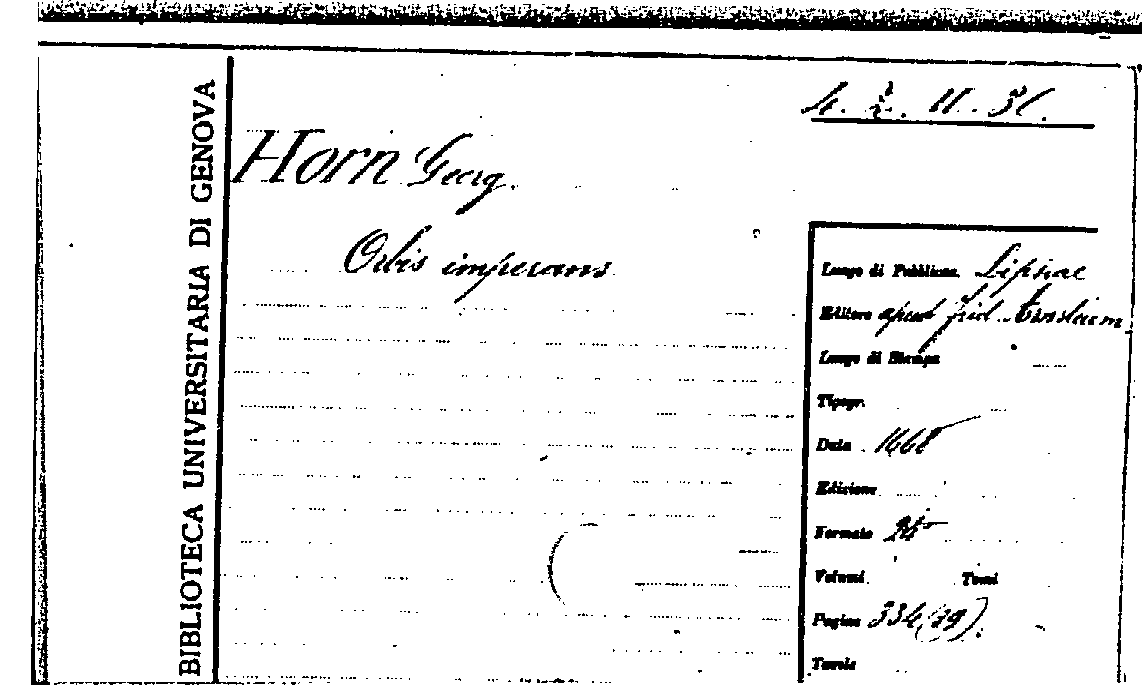 BIBLIOTECA UNIVERSITARIA DI GENOVA
4. 2. II. 31.
Horn Georg.
Orbis imperans
Luogo di Pubblicaz. Lipsiae
Editore apud
Luogo di Stampa
Tipogr.
Data 1668
Edizione
Formato 24°
Volumi Tomi
Pagine 334(29)
Tavole